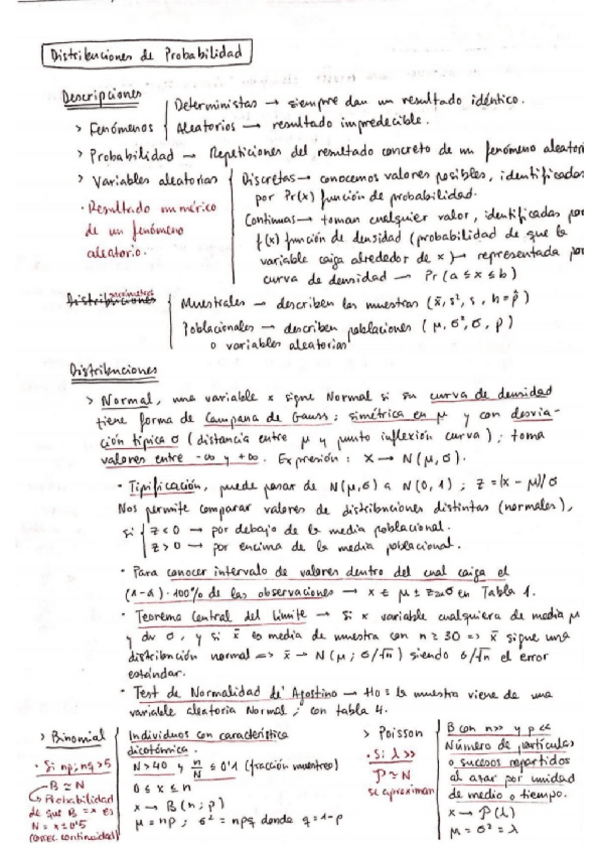 Distribuciones de Probabilidad
Descripciones
> Fenómenos
Deterministas → siempre dan un resultado idéntico.
Aleatorios → resultado impredecible.
> Probabilidad → Repeticiones del resultado concreto de un fenómeno aleatori
> Variables aleatorias
· Resultado numérico
de un fenómeno
aleatorio.
Discretas → conocemos valores posibles, identificadas
por Pr(x) función de probabilidad.
Continuas → toman cualquier valor, identificadas por
f(x) función de densidad (probabilidad de que la
variable caiga alrededor de x) → representada por
curva de densidad → Pr (a ≤ x ≤ b)
parámetros
Distribuciones
Muestrales → describen las muestras (x̄, s², s, h=p̂)
Poblacionales → describen poblaciones (μ, σ², σ, p)
o variables aleatorias
Distribuciones
> Normal, una variable x sigue Normal si su curva de densidad
tiene forma de Campana de Gauss; simétrica en μ y con desvia-
ción típica σ (distancia entre μ y punto inflexión curva); toma
valores entre -∞ y +∞. Expresión: X → N(μ, σ).
· Tipificación, puede pasar de N(μ,σ) a N(0,1); z = (x - μ)/σ
Nos permite comparar valores de distribuciones distintas (normales),
si
z < 0 → por debajo de la media poblacional.
z > 0 → por encima de la media poblacional.
· Para conocer intervalo de valores dentro del cual caiga el
(1-α)·100% de las observaciones → x ∈ μ ± zα·σ en Tabla 1.
· Teorema Central del Límite → Si x variable cualquiera de media μ
y dv σ, y si x̄ es media de muestra con n ≥ 30 => x̄ sigue una
distribución normal => x̄ → N(μ; σ/√n) siendo σ/√n el error
estándar.
· Test de Normalidad de D'Agostino → H₀: la muestra viene de una
variable aleatoria Normal; con tabla 4.
> Binomial
· Si np; nq > 5
B ≈ N
Probabilidad
de que B = x es
N = x ± 0'5
(correc continuidad)
Individuos con característica
dicotómica.
N > 40 y n/N ≤ 0'1 (fracción muestreo)
0 ≤ x ≤ n
x → B(n; p)
μ = np; σ² = npq donde q = 1-p
> Poisson
· Si λ >>
P ≈ N
se aproximan
B con n>> y p<<
Número de partículas
o sucesos repartidos
al azar por unidad
de medio o tiempo.
x → P(λ)
μ = σ² = λ